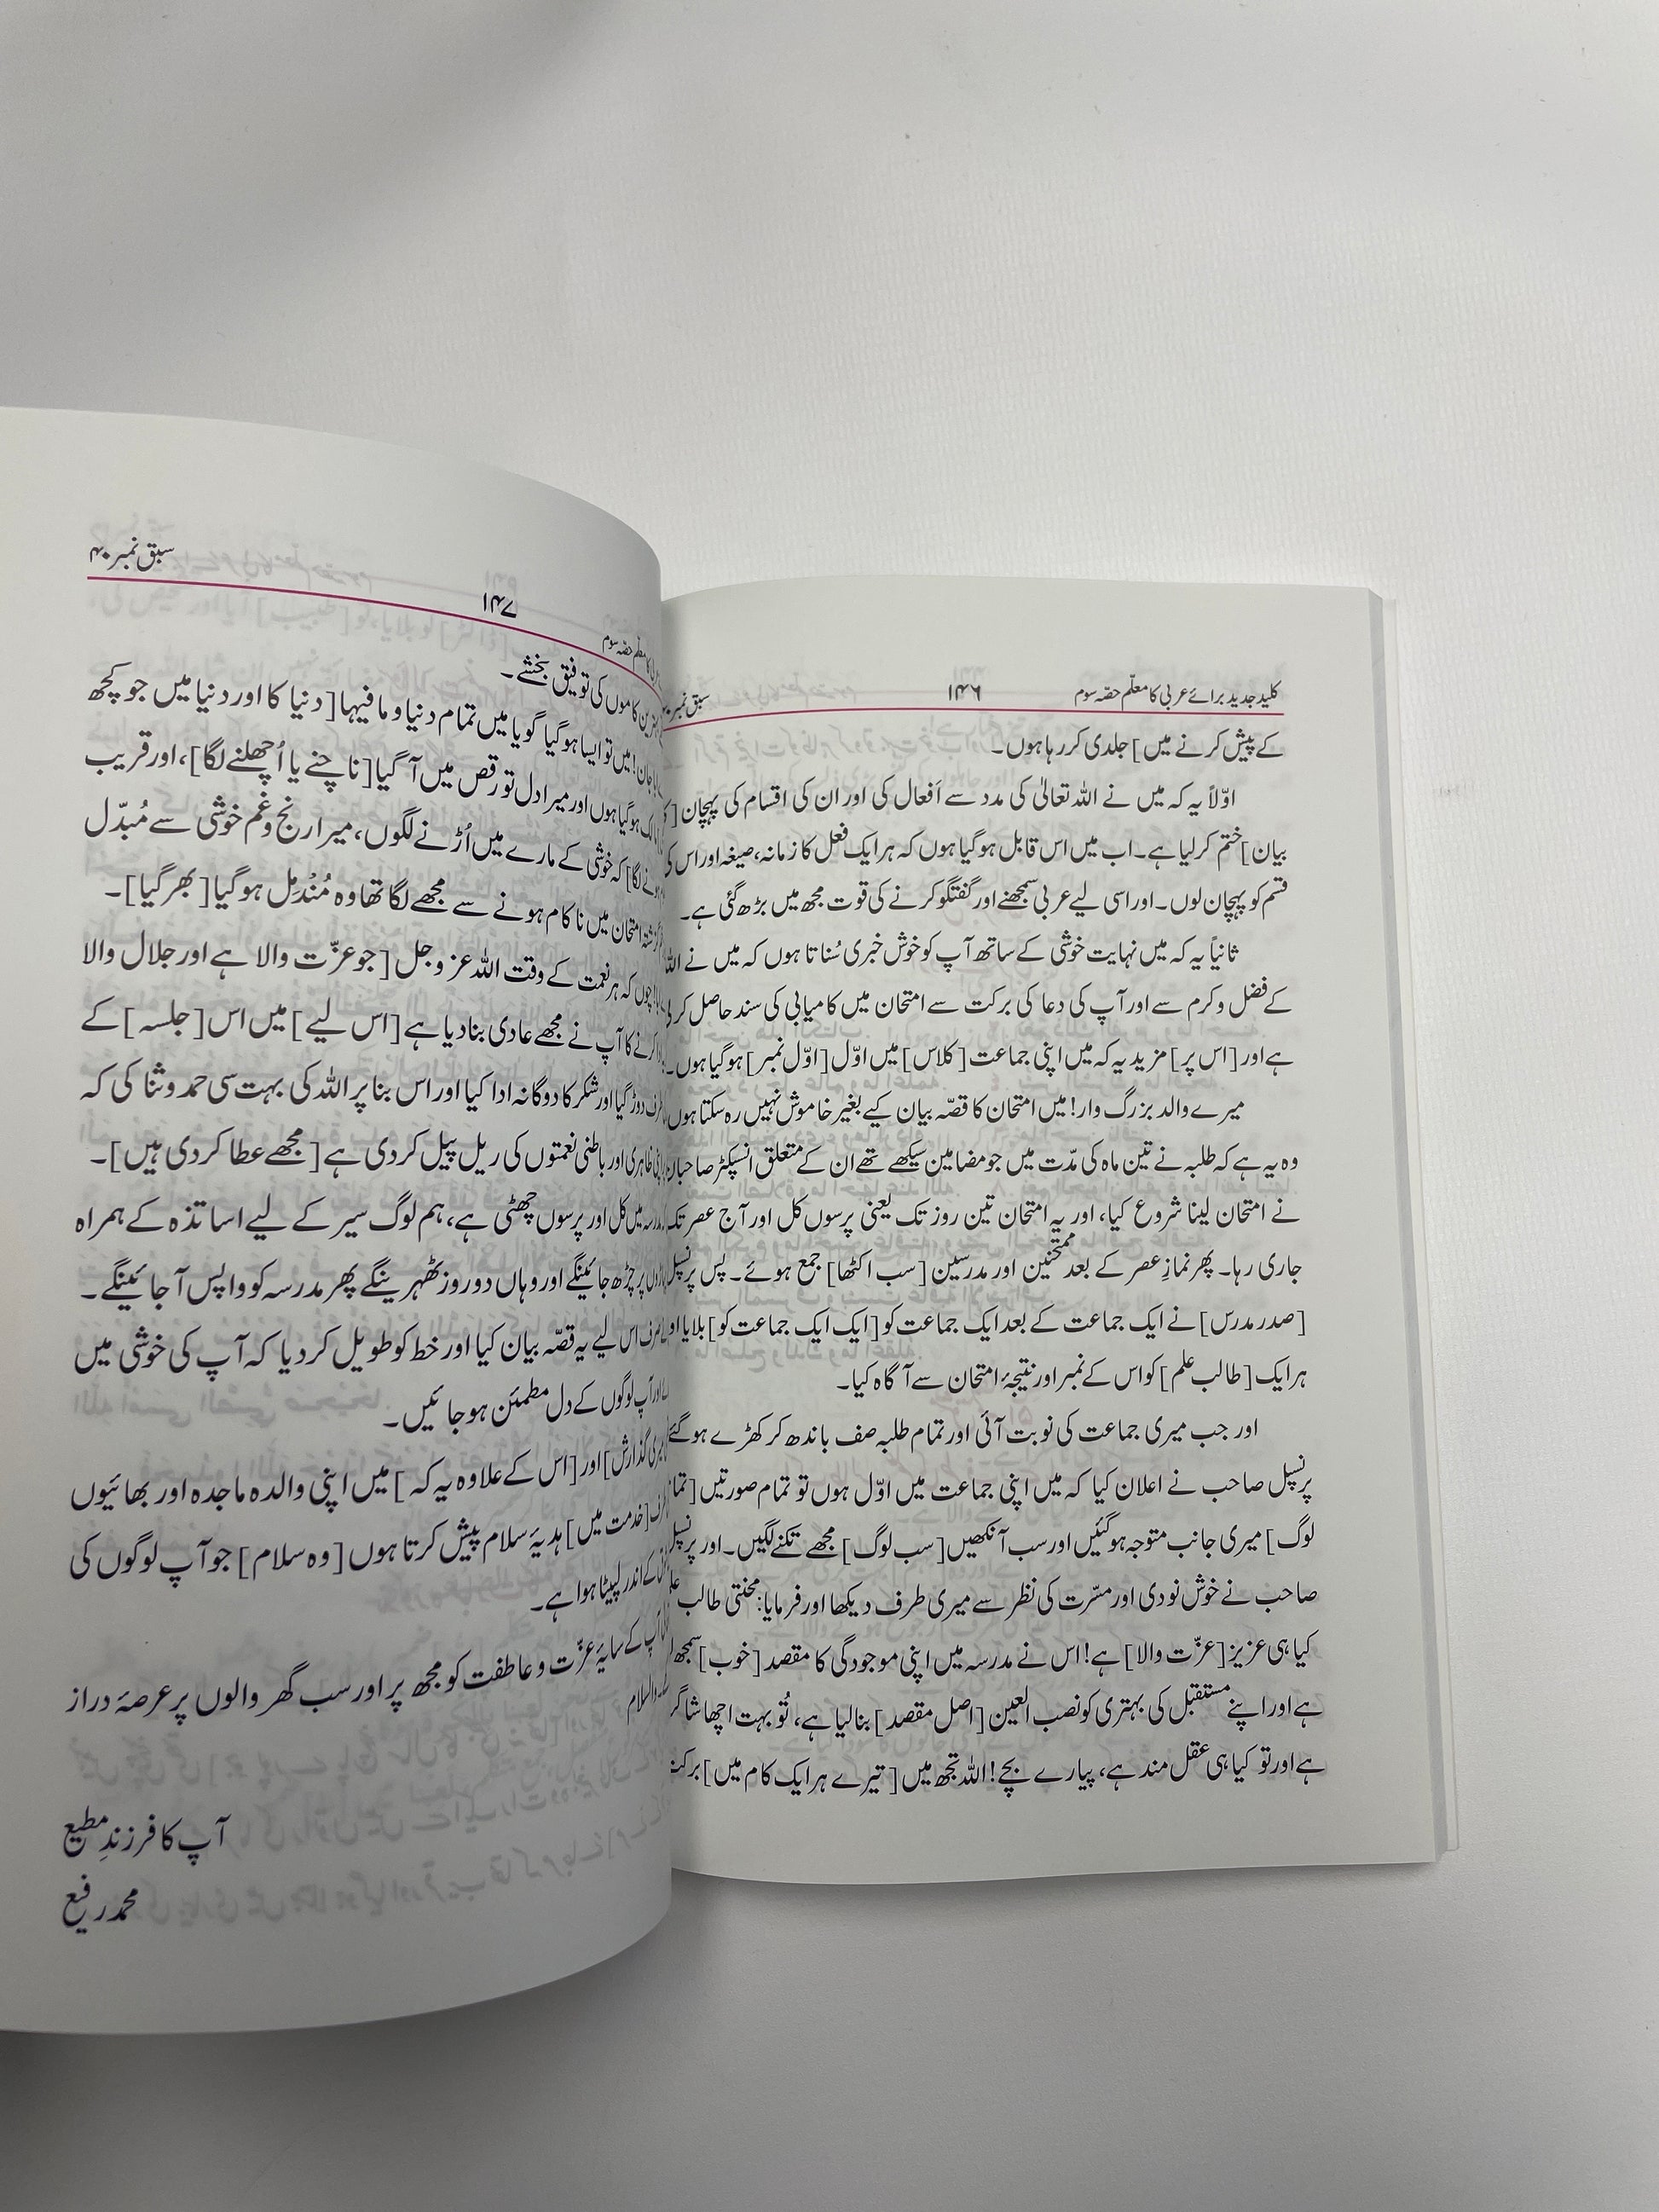 کلید جدید برائے عربی کا معلّم حصّہ سوم
۱۴۶
سبق نمبر
کے پیش کرنے میں] جلدی کر رہا ہوں۔
اوّلاً یہ کہ میں نے اللہ تعالیٰ کی مدد سے اَفعال کی اور ان کی اقسام کی پہچان [
بیان] ختم کر لیا ہے۔ اب میں اس قابل ہو گیا ہوں کہ ہر ایک فعل کا زمانہ، صیغہ اور اس کی
قسم کو پہچان لوں۔ اور اسی لیے عربی سمجھنے اور گفتگو کرنے کی قوت مجھ میں بڑھ گئی ہے۔
ثانیاً یہ کہ میں نہایت خوشی کے ساتھ آپ کو خوش خبری سُناتا ہوں کہ میں نے اللہ
کے فضل و کرم سے اور آپ کی دعا کی برکت سے امتحان میں کامیابی کی سند حاصل کر
ہے اور [اس پر] مزید یہ کہ میں اپنی جماعت [کلاس] میں اوّل [اوّل نمبر] ہو گیا ہوں۔
میرے والد بزرگ وار! میں امتحان کا قصّہ بیان کیے بغیر خاموش نہیں رہ سکتا ہوں
وہ یہ ہے کہ طلبہ نے تین ماہ کی مدّت میں جو مضامین سیکھے تھے ان کے متعلق انسپکٹر صاحبان
نے امتحان لینا شروع کیا، اور یہ امتحان تین روز تک یعنی پرسوں کل اور آج عصر تک
جاری رہا۔ پھر نمازِ عصر کے بعد ممتحنین اور مدرسین [سب اکٹھا] جمع ہوئے۔ پس پرنسپل
[صدر مدرس] نے ایک جماعت کے بعد ایک جماعت کو [ایک ایک جماعت کو] بلایا او
ہر ایک [طالب علم] کو اس کے نمبر اور نتیجۂ امتحان سے آگاہ کیا۔
اور جب میری جماعت کی نوبت آئی اور تمام طلبہ صف باندھ کر کھڑے ہو گئے
پرنسپل صاحب نے اعلان کیا کہ میں اپنی جماعت میں اوّل ہوں تو تمام صورتیں [تما
لوگ] میری جانب متوجہ ہو گئیں اور سب آنکھیں [سب لوگ] مجھے تکنے لگیں۔ اور پرنسپل
صاحب نے خوش نودی اور مسّرت کی نظر سے میری طرف دیکھا اور فرمایا: محنتی طالب
کیا ہی عزیز [عزّت والا] ہے! اس نے مدرسہ میں اپنی موجودگی کا مقصد [خوب] سمجھ
ہے اور اپنے مستقبل کی بہتری کو نصب العین [اصل مقصد] بنا لیا ہے، تُو بہت اچھا شاگر
ہے اور تو کیا ہی عقل مند ہے، پیارے بچے! اللہ تجھ میں [تیرے ہر ایک کام میں] برکت
معلّم حصّہ سوم
۱۴۷
سبق نمبر ۴۰
کاموں کی توفیق بخشے۔
جان! میں تو ایسا ہو گیا گویا میں تمام دنیا و مافیہا [دنیا کا اور دنیا میں جو کچھ
ہو گیا ہوں اور میرا دل تو رقص میں آ گیا [ناچنے یا اُچھلنے لگا]، اور قریب
لگا] کہ خوشی کے مارے میں اُڑنے لگوں، میرا رنج و غم خوشی سے مُبدّل
امتحان میں ناکام ہونے سے مجھے لگا تھا وہ مُنْدمِل ہو گیا [بھر گیا]۔
چوں کہ ہر نعمت کے وقت اللہ عز و جل [جو عزّت والا ہے اور جلال والا
کرنے کا آپ نے مجھے عادی بنا دیا ہے [اس لیے] میں اس [جلسہ] کے
دوڑ گیا اور شکر کا دوگانہ ادا کیا اور اس بنا پر اللہ کی بہت سی حمد و ثنا کی کہ
ظاہری اور باطنی نعمتوں کی ریل پیل کر دی ہے [مجھے عطا کر دی ہیں]۔
میں کل اور پرسوں چھٹی ہے، ہم لوگ سیر کے لیے اساتذہ کے ہمراہ
پر چڑھ جائینگے اور وہاں دو روز ٹھہرینگے پھر مدرسہ کو واپس آ جائینگے۔
اس لیے یہ قصّہ بیان کیا اور خط کو طویل کر دیا کہ آپ کی خوشی میں
اور آپ لوگوں کے دل مطمئن ہو جائیں۔
گذارش] اور [اس کے علاوہ یہ کہ] میں اپنی والدہ ماجدہ اور بھائیوں
[خدمت میں] ہدیۂ سلام پیش کرتا ہوں [وہ سلام] جو آپ لوگوں کی
کے اندر لپیٹا ہوا ہے۔
آپ کے سایۂ عزّت و عاطفت کو مجھ پر اور سب گھر والوں پر عرصۂ دراز
والسلام
آپ کا فرزندِ مطیع
محمد رفیع